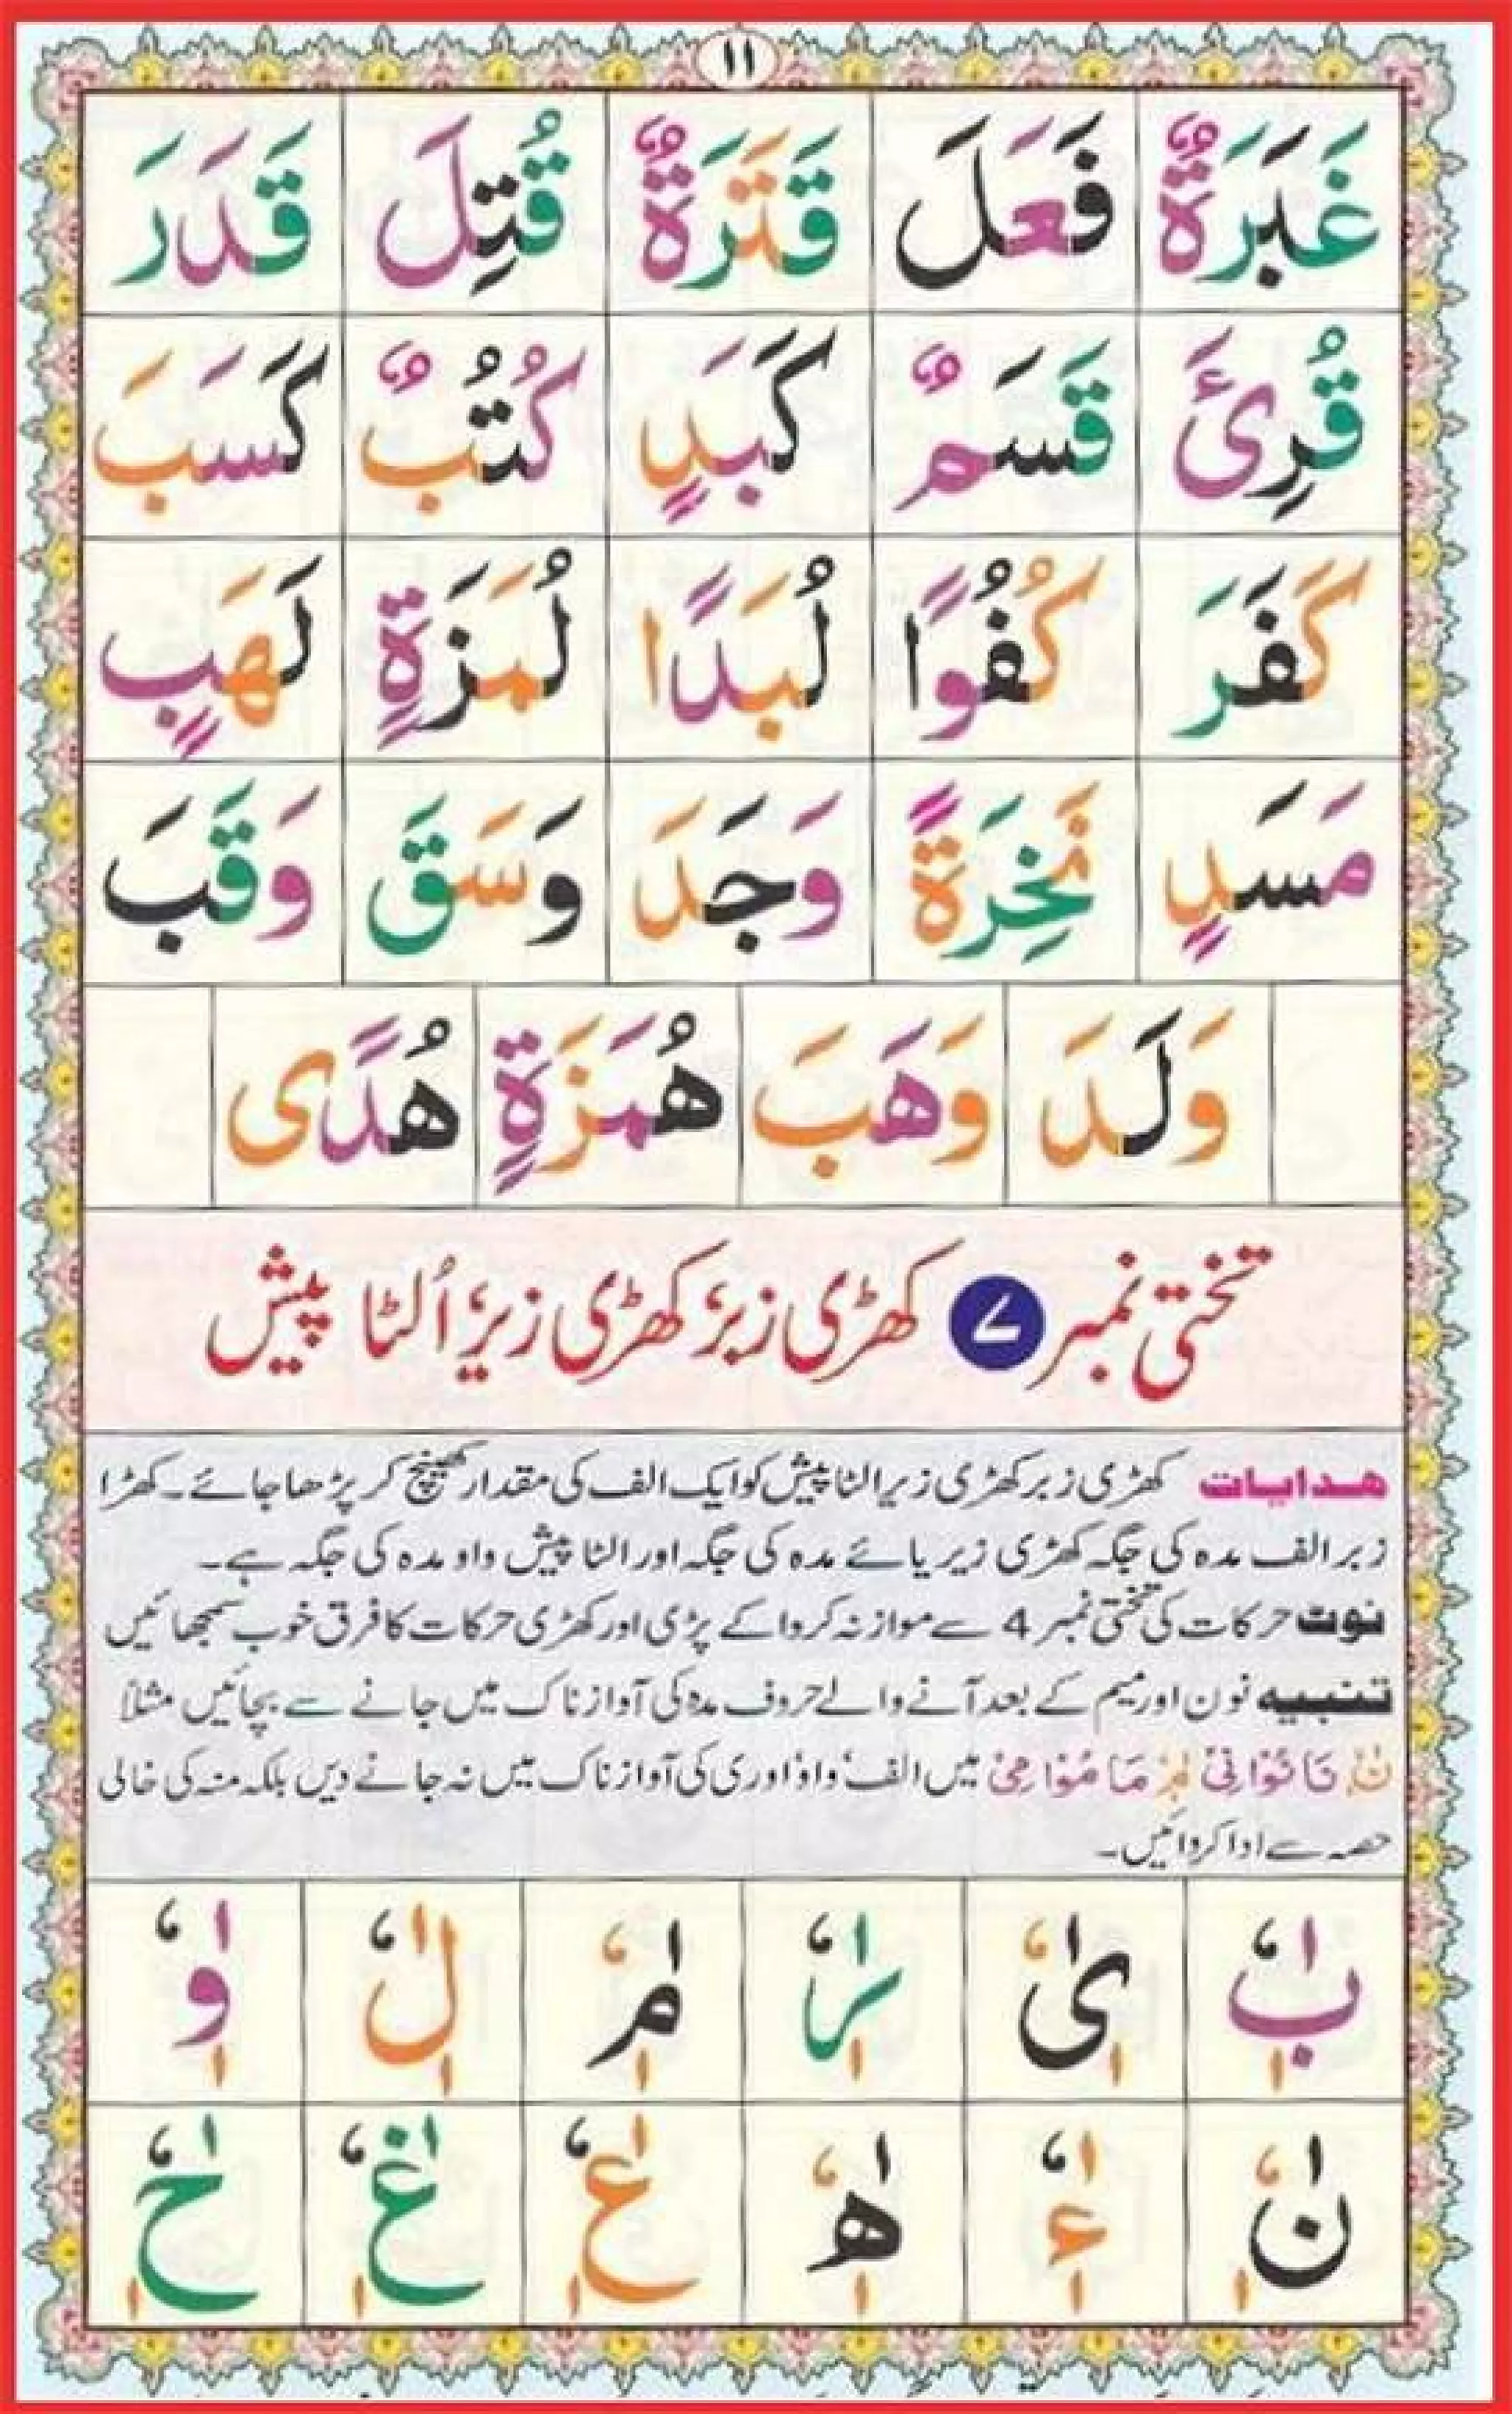 ۱۱
غَبَرَةٌ فَعَلَ قَتَرَةٌ قُتِلَ قَدَرَ
قُرِئَ قَسَمٌ كَبَدٍ كُتُبٌ كَسَبَ
كَفَرَ كُفُوًا لُبَدًا لُمَزَةٍ لَهَبٍ
مَسَدٍ نَخِرَةً وَجَدَ وَسَقَ وَقَبَ
وَلَدَ وَهَبَ هُمَزَةٍ هُدًى
تختی نمبر ۷ کھڑی زبر، کھڑی زیر، اُلٹا پیش
ھدایات کھڑی زبر کھڑی زیر الٹا پیش کو ایک الف کی مقدار کھینچ کر پڑھا جائے۔ کھڑا
زبر الف مدہ کی جگہ کھڑی زیر یائے مدہ کی جگہ اور الٹا پیش واو مدہ کی جگہ ہے۔
نوٹ حرکات کی تختی نمبر 4 سے موازنہ کروا کے پڑی اور کھڑی حرکات کا فرق خوب سمجھائیں
تنبیہ نون اور میم کے بعد آنے والے حروف مدہ کی آواز ناک میں جانے سے بچائیں مثلاً
نٰ نَا نُوْا نِیْ مٰ مَا مُوْا مِیْ میں الف، واؤ اور ی کی آواز ناک میں نہ جانے دیں بلکہ منہ کی خالی
حصہ سے ادا کروائیں۔
بٰٖٗ یٰٖٗ رٰٖٗ مٰٖٗ لٰٖٗ وٰٖٗ
نٰٖٗ ءٰٖٗ ھٰٖٗ عٰٖٗ غٰٖٗ حٰٖٗ